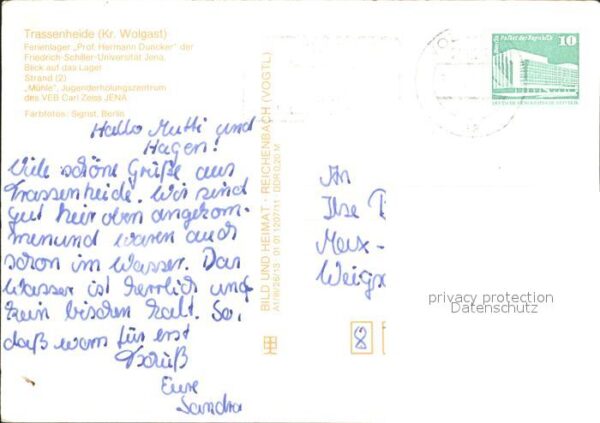 Trassenheide (Kr. Wolgast)
Ferienlager „Prof. Hermann Duncker" der
Friedrich-Schiller-Universität Jena,
Blick auf das Lager
Strand (2)
„Mühle", Jugenderholungszentrum
des VEB Carl Zeiss JENA
Farbfotos: Signst, Berlin
Hallo Mutti und
Hagen!
Viele schöne Grüße aus
Trassenheide. Wir sind
gut hier oben angekom-
menund waren auch
schon im Wasser. Das
Wasser ist herrlich und
kein bischen kalt. So,
daß wars für erst
Tschüß
Eure
Sandra
BILD UND HEIMAT · REICHENBACH (VOGTL)
A1/III/26/13 01 01 1207/11 DDR 0,20 M
Palast der Republik
10
DEUTSCHE DEMOKRATISCHE REPUBLIK
An
Ilse
Max-
8
privacy protection
Datenschutz